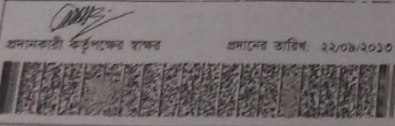 প্রদানকারী কর্তৃপক্ষের স্বাক্ষর প্রদানের তারিখ: ২২/০৯/২০১৩